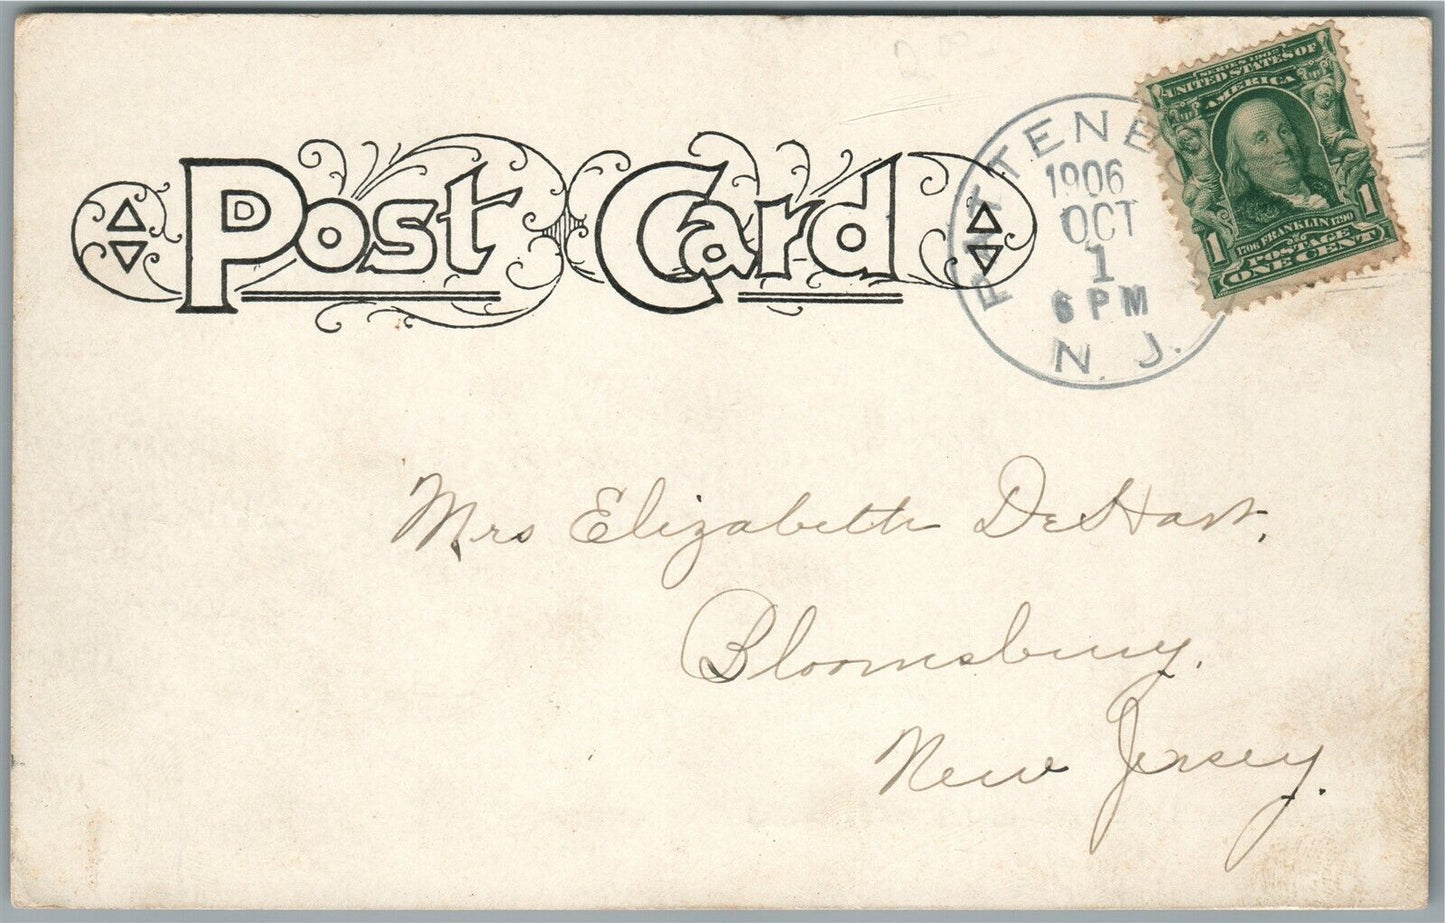 Post Card
PATTENB
1906
OCT
1
6 PM
N. J.
SERIES 1902
UNITED STATES OF
AMERICA
1706 FRANKLIN 1790
1 1
POSTAGE
ONE CENT
Mrs Elizabeth DeHart,
Bloomsbury,
New Jersey.